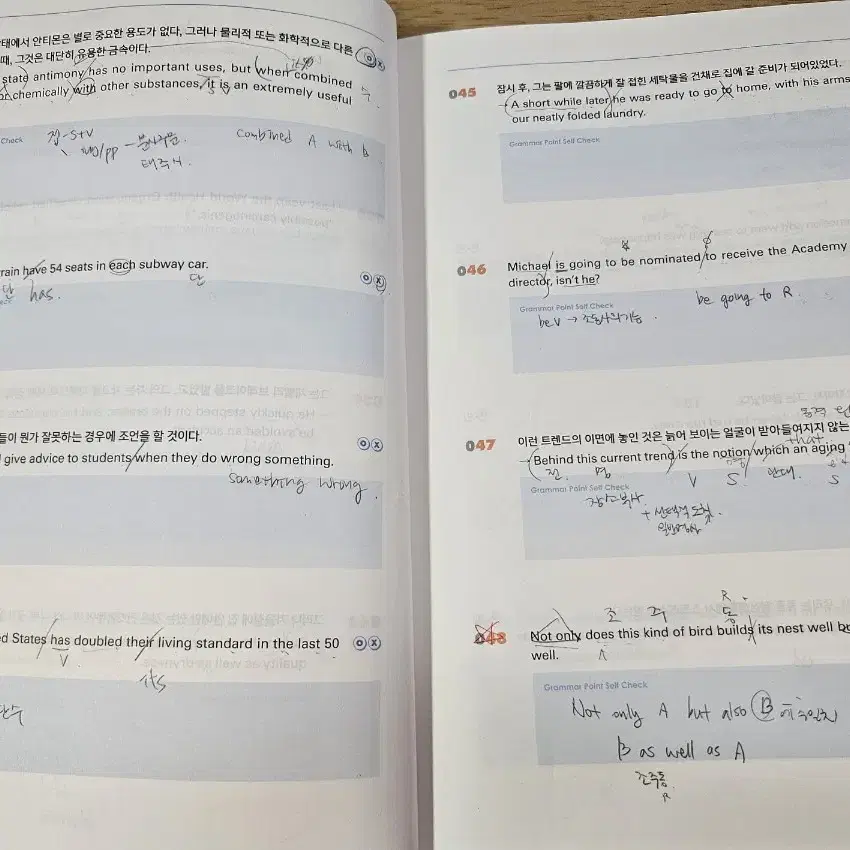 상태에서 안티몬은 별로 중요한 용도가 없다, 그러나 물리적 또는 화학적으로 다른
때, 그것은 대단히 유용한 금속이다.
state antimony has no important uses, but when combined
or chemically with other substances, it is an extremely useful
Check
접-S+V
combined A with B
rain have 54 seats in each subway car.
단 has.
단
들이 뭔가 잘못하는 경우에 조언을 할 것이다.
give advice to students when they do wrong something.
something wrong.
ed States has doubled their living standard in the last 50
V
its
단수
045 잠시 후, 그는 팔에 깔끔하게 잘 접힌 세탁물을 건채로 집에 갈 준비가 되어있었다.
A short while later he was ready to go to home, with his arms
our neatly folded laundry.
Grammar Point Self Check
046 Michael is going to be nominated to receive the Academy
director, isn't he?
Grammar Point Self Check
be going to R.
be V → 조동사의 기능.
047 이런 트렌드의 이면에 놓인 것은 늙어 보이는 얼굴이 받아들여지지 않는
that
Behind this current trend is the notion which an aging
전 명 V S S
Grammar Point Self Check
장소부사
조 주 동
R
048 Not only does this kind of bird builds its nest well
well.
Grammar Point Self Check
Not only A but also B 에 수일치
B as well as A
조주동
R